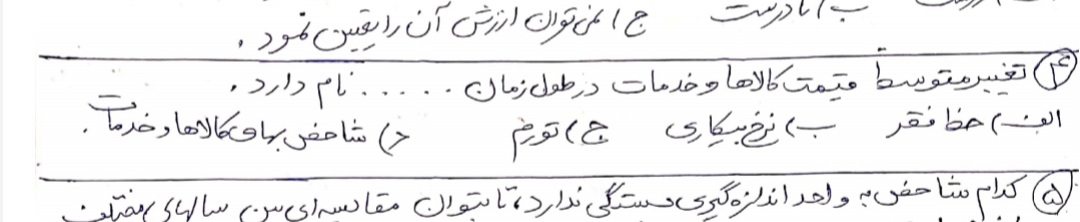 ب) نادرست ج) نمی‌توان ارزش آن را تعیین نمود.
۴) تغییر متوسط قیمت کالاها و خدمات در طول زمان ..... نام دارد.
الف) خط فقر ب) نرخ بیکاری ج) تورم د) شاخص بهای کالاها و خدمات.
۵) کدام شاخص به واحد اندازه‌گیری بستگی ندارد، تا بتوان مقایسه‌ای بین سالهای مختلف